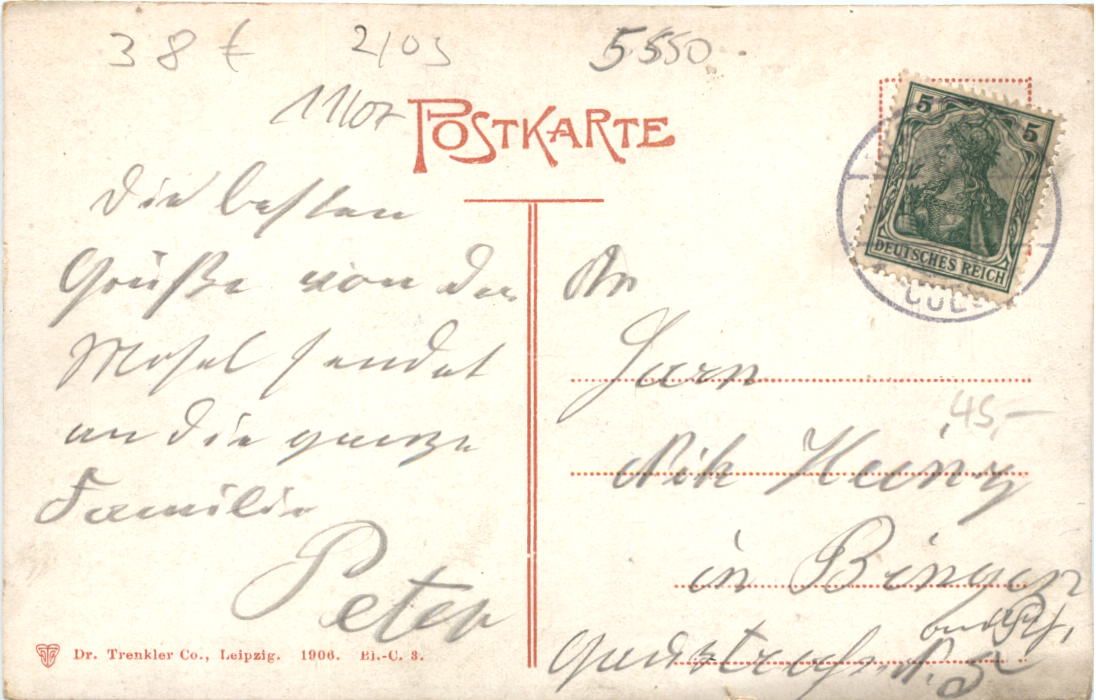 38 €
2/03
5550
11107
POSTKARTE
5 5
DEUTSCHES REICH
Die besten
Grüße von der
Mosel sendet
an die ganze
Familie
Peter
An
Herrn
45,-
Nik Heinz
in Bingen
Dr. Trenkler Co., Leipzig. 1906. Bl.-C. 3.